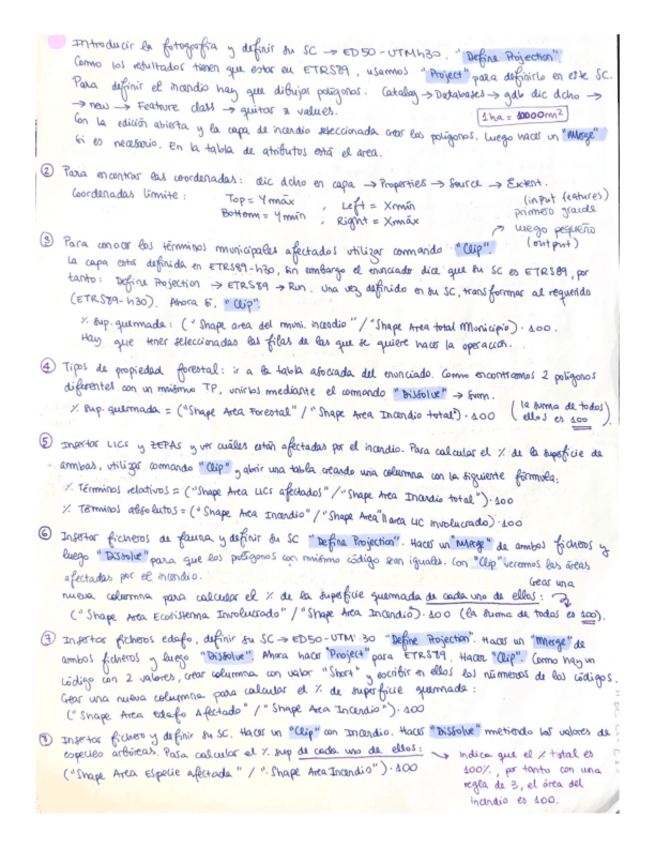 Introducir la fotografía y definir su SC → ED50-UTMh30. "Define Projection".
Como los resultados tienen que estar en ETRS89, usamos "Project" para definirlo en este SC.
Para definir el incendio hay que dibujar polígonos. Catalog → Databases → gdb clic dcho →
→ new → Feature class → quitar z values.
1 ha = 10000m²
Con la edición abierta y la capa de incendio seleccionada crear los polígonos. Luego hacer un "Merge"
si es necesario. En la tabla de atributos está el área.
② Para encontrar las coordenadas: clic dcho en capa → Properties → Source → Extent.
Coordenadas límite: Top = Ymáx ; Left = Xmín
Bottom = Ymín ; Right = Xmáx
(input features)
primero grande
→ luego pequeño
(output)
③ Para conocer los términos municipales afectados utilizar comando "Clip".
La capa está definida en ETRS89-h30, sin embargo el enunciado dice que su SC es ETRS89, por
tanto: Define Projection → ETRS89 → Run. Una vez definido en su SC, transformar al requerido
(ETRS89-h30). Ahora sí, "Clip"
% sup. quemada: ("Shape area del muni. incendio" / "Shape Area total Municipio") · 100.
Hay que tener seleccionadas las filas de las que se quiere hacer la operación.
④ Tipos de propiedad forestal: ir a la tabla asociada del enunciado. Como encontramos 2 polígonos
diferentes con un mismo TP, unirlos mediante el comando "Dissolve" → Sum.
% sup. quemada = ("Shape Area Forestal" / "Shape Area Incendio total") · 100 (la suma de todos
ellos es 100)
⑤ Insertar LICs y ZEPAS y ver cuáles están afectadas por el incendio. Para calcular el % de la superficie de
ambas, utilizar comando "Clip" y abrir una tabla creando una columna con la siguiente fórmula:
% Términos relativos = ("Shape Area LICs afectados" / "Shape Area Incendio total") · 100
% Términos absolutos = ("Shape Area Incendio" / "Shape Area" área LIC involucrado) · 100
⑥ Insertar ficheros de fauna y definir su SC "Define Projection". Hacer un "Merge" de ambos ficheros y
luego "Dissolve" para que los polígonos con mismo código sean iguales. Con "Clip" veremos las áreas
afectadas por el incendio. Crear una
nueva columna para calcular el % de la superficie quemada de cada uno de ellos:
("Shape Area Ecosistema Involucrado" / "Shape Area Incendio") · 100 (la suma de todas es 100).
⑦ Insertar ficheros edafo, definir su SC → ED50-UTM 30 "Define Projection". Hacer un "Merge" de
ambos ficheros y luego "Dissolve". Ahora hacer "Project" para ETRS89. Hacer "Clip". Como hay un
código con 2 valores, crear columna con valor "Short" y escribir en ellos los números de los códigos.
Crear una nueva columna para calcular el % de superficie quemada:
("Shape Area edafo Afectado" / "Shape Area Incendio") · 100
⑧ Insertar fichero y definir su SC. Hacer un "Clip" con Incendio. Hacer "Dissolve" metiendo los valores de
especies arbóreas. Para calcular el % sup de cada uno de ellos:
("Shape Area Especie afectada" / "Shape Area Incendio") · 100
→ indica que el % total es
100%, por tanto con una
regla de 3, el área del
incendio es 100.